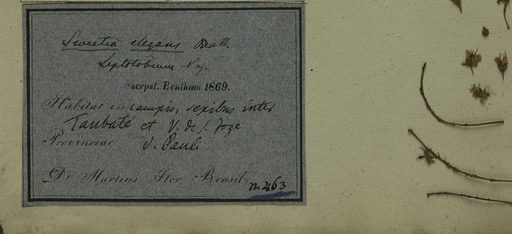 Sweetia elegans Benth
Leptolobium Vog.
scrpst. Bentham 1869.
Habitat in campis, sepibus inter
Taubaté et V. de S. Joze
Provinciae S. Pauli
Dr Martius Iter Brasil. n. 463